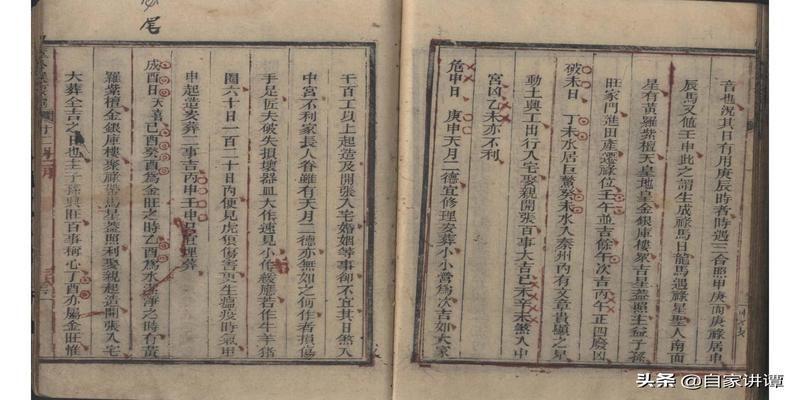 音也況其日有用庚辰時者時遇三合照甲庚而庚祿居申
辰馬又值壬申此之謂生成祿馬日龍馬遇祿星聖人南面
星有黃羅紫檀天皇地皇金銀庫樓眾吉星蓋照主益子孫
旺家門進田產遷祿位壬午並吉餘午次吉丙午正四廢凶
破未日 丁未水居巨鰲癸未水入秦州內有文章貴顯之星
動土興工出行入宅娶親開張百事大吉己未辛未煞入中
宮凶乙未亦不利
危申日 庚申天月二德宜修理安葬小小營為次吉如大家
千百工以上起造及開張入宅婚姻等事卻不宜其日煞入
中宮不利家長人眷雖有天月二德亦無如之何作者損傷
手足匠夫破失損壞器皿大作速見小作緩應若作牛羊猪
圈六十日一百二十日內便見虎狼傷害更生瘟疫時氣甲
申起造安葬二事吉丙申壬申只宜埋葬
成酉日 天喜己酉癸酉為金旺之時乙酉為水潔淨之時有黃
羅紫檀金銀庫樓聚祿帶馬星蓋照利娶親起造開張入宅
大葬全吉之日也主子孫興旺百事稱心丁酉亦屬金旺惟
尾
头条 @自家讲谭